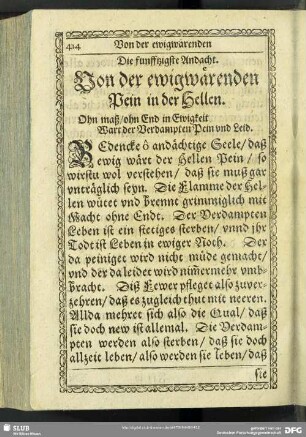 414 Von der ewigwärenden
Die funffzigste Andacht.
Von der ewigwärenden
Pein in der Hellen.
Ohn maß/ohn End in Ewigkeit
Wart der Verdampten Pein vnd Leid.
BEdencke ô andächtige Seele/daß
ewig wärt der Hellen Pein/ so
wirstu wol verstehen/ daß sie muß gar
vnträglich seyn. Die Flamme der Hel-
len wütet vnd brennt grimmiglich mit
Macht ohne Endt. Der Verdampten
Leben ist ein stetiges sterben/ vnnd jhr
Todt ist Leben in ewiger Noth. Der
da peiniget wird nicht müde gemacht/
vnd der da leidet wird nim̃ermehr vmb-
bracht. Diß Fewer pfleget also zuver-
zehren/ daß es zugleich thut mit neeren.
Allda mehret sich also die Qual/ daß
sie doch new ist allemal. Die Verdam-
pten werden also sterben/ daß sie doch
allzeit leben/ also werden sie leben/ daß
sie
SLUB
DFG